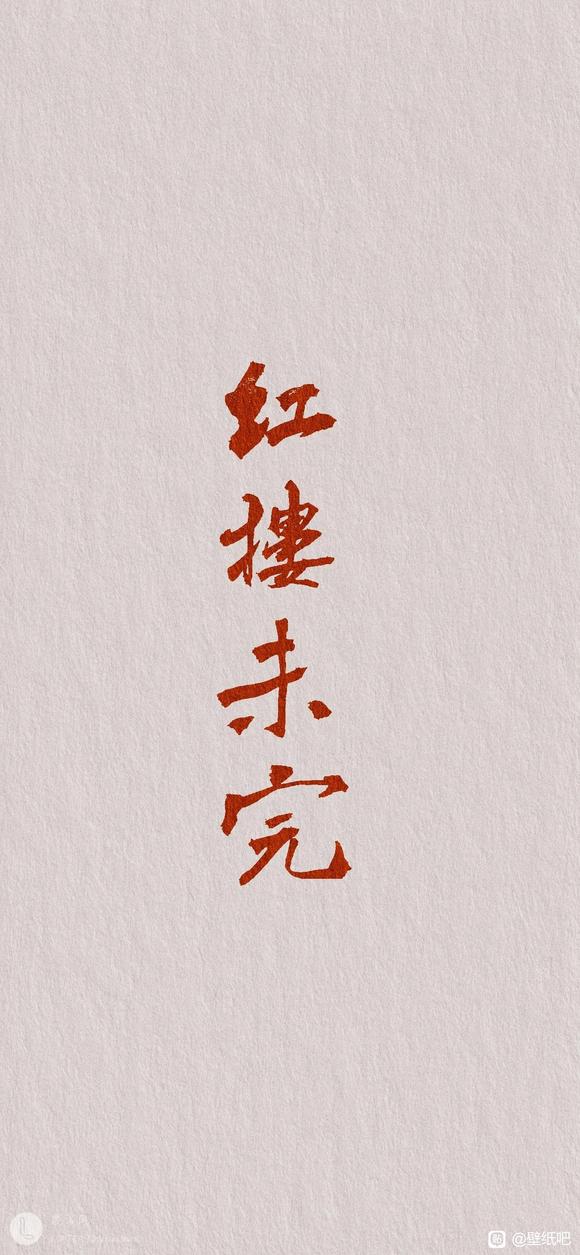 红楼未完
@壁纸吧